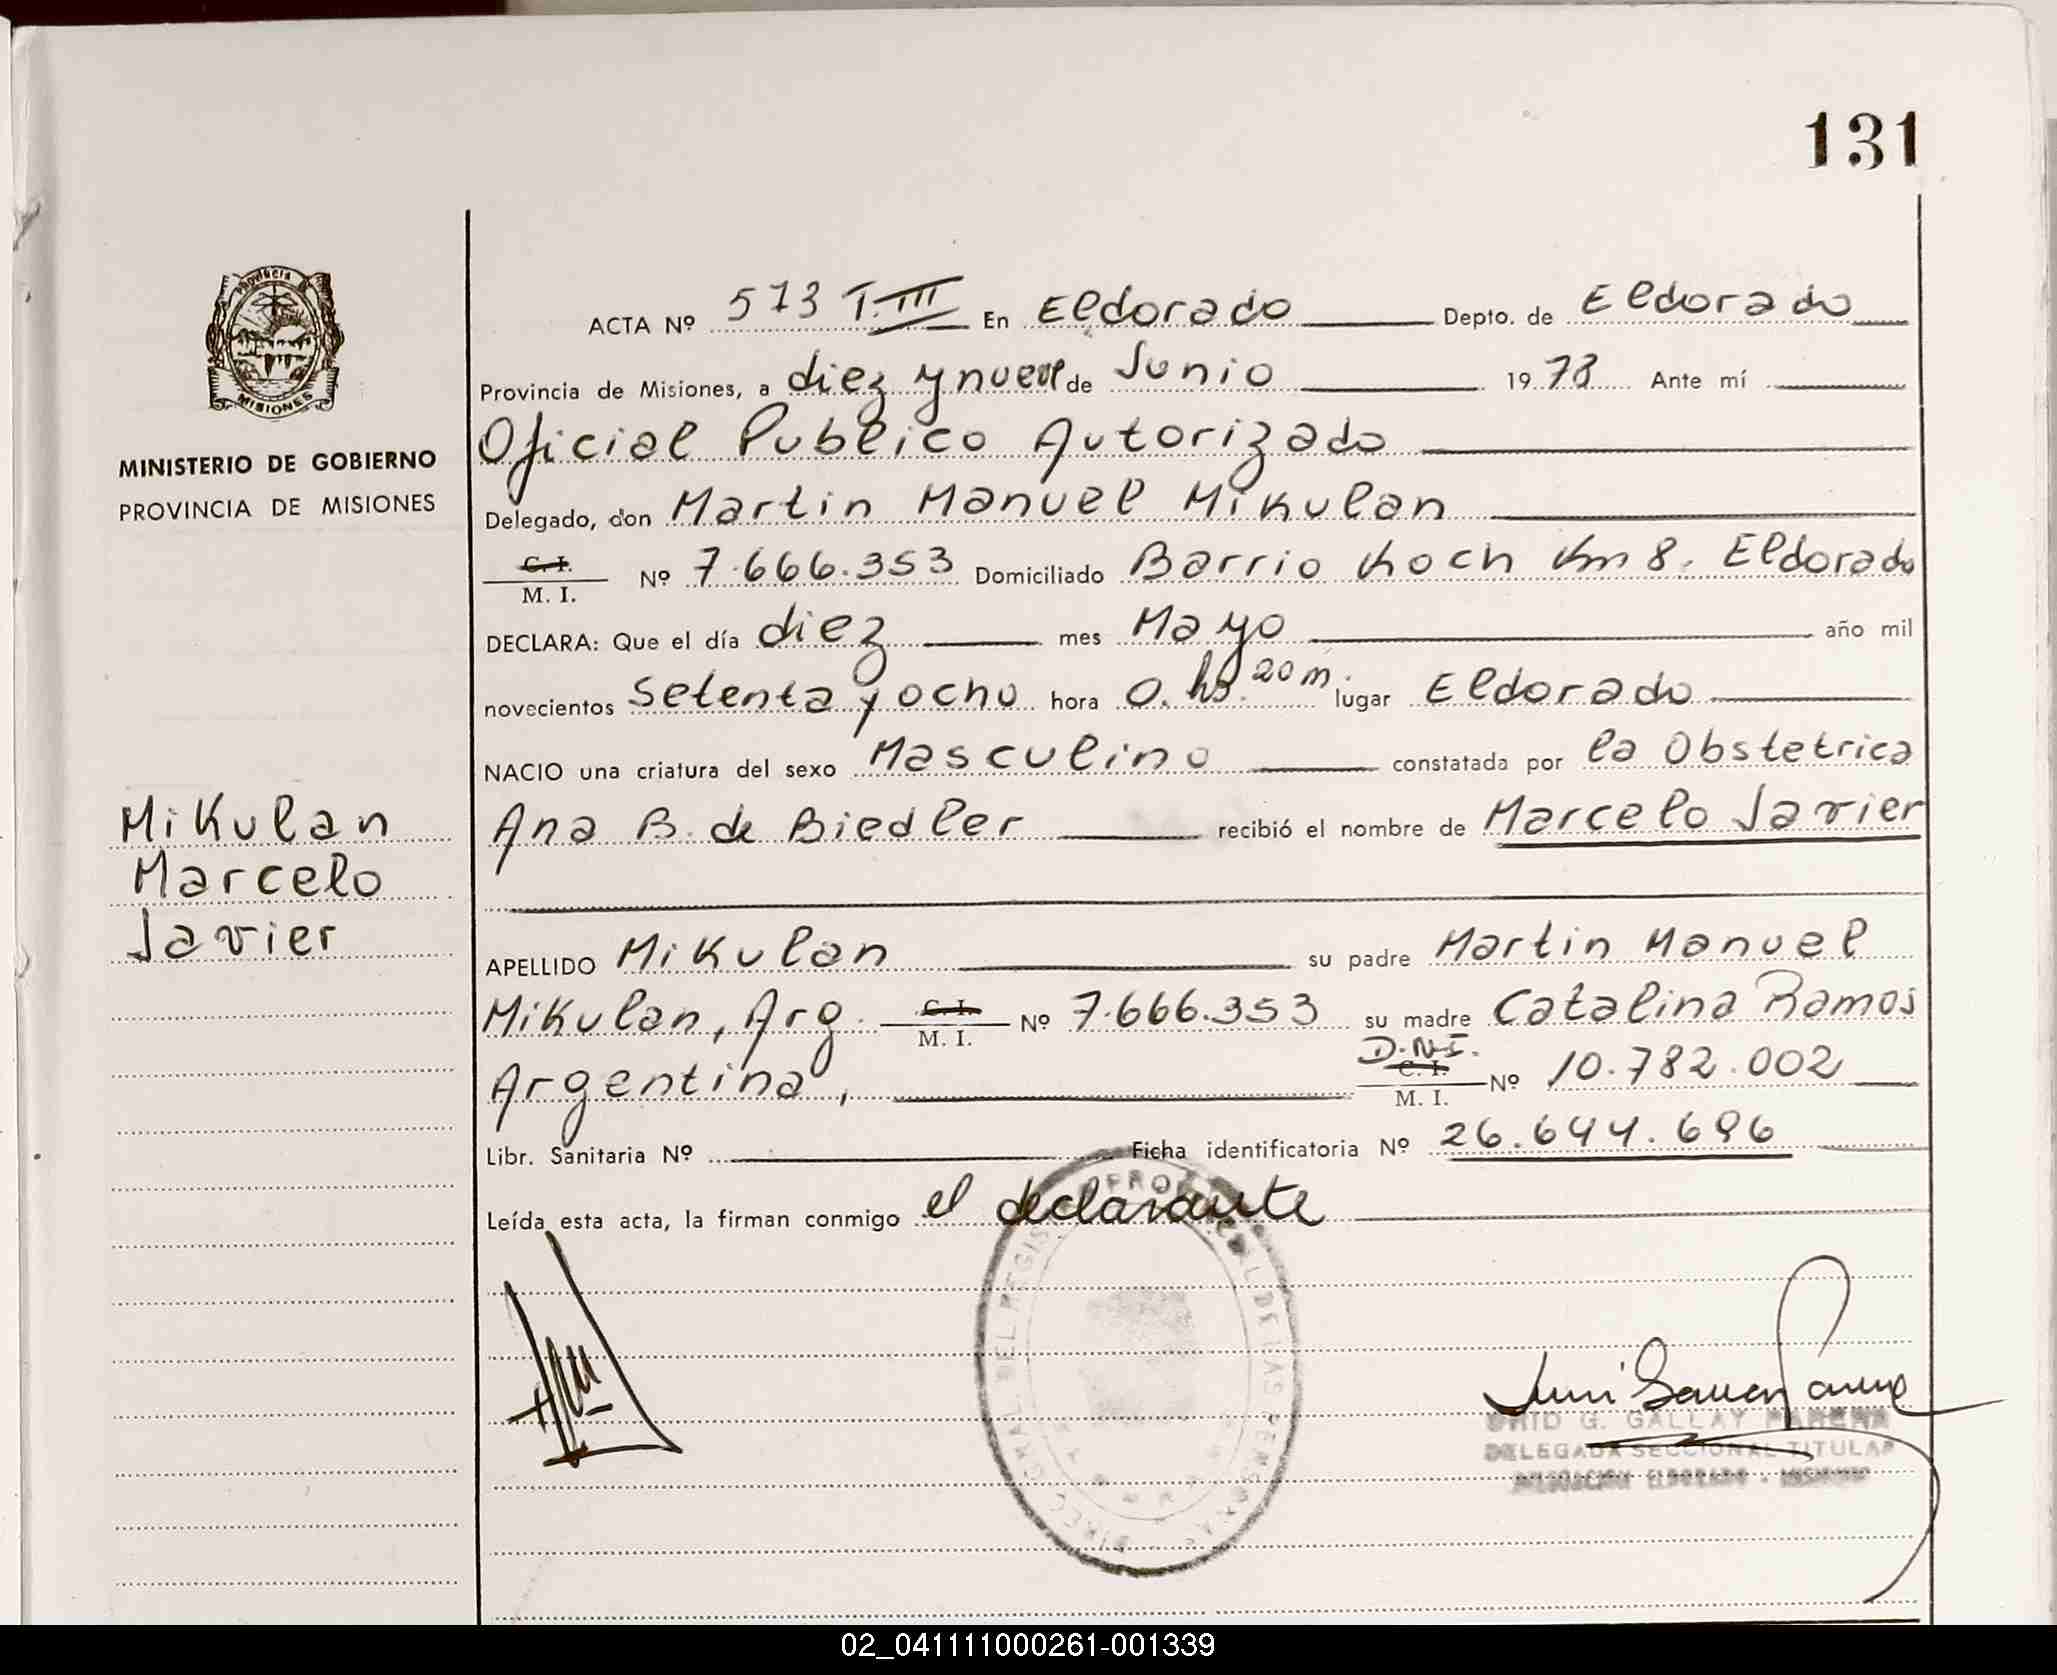 131
Provincia
MISIONES
MINISTERIO DE GOBIERNO
PROVINCIA DE MISIONES
Mikulan
Marcelo
Javier
ACTA Nº 573 T.III En Eldorado Depto. de Eldorado
Provincia de Misiones, a diez y nueve de Junio 1978 Ante mí
Oficial Publico Autorizado
Delegado, don Martin Manuel Mikulan
C. I.
M. I. Nº 7.666.353 Domiciliado Barrio Koch Km 8. Eldorado
DECLARA: Que el día diez mes Mayo año mil
novecientos Setenta y ocho hora 0. hs. 20 m. lugar Eldorado
NACIO una criatura del sexo Masculino constatada por la Obstetrica
Ana B. de Biedler recibió el nombre de Marcelo Javier
APELLIDO Mikulan su padre Martin Manuel
Mikulan, Arg. C. I. M. I. Nº 7.666.353 su madre Catalina Ramos
Argentina, D.N.I. C. I. M. I. Nº 10.782.002
Libr. Sanitaria Nº Ficha identificatoria Nº 26.644.696
Leída esta acta, la firman conmigo el declarante
G. GALLAY
DELEGADA SECCIONAL TITULAR
02_041111000261-001339